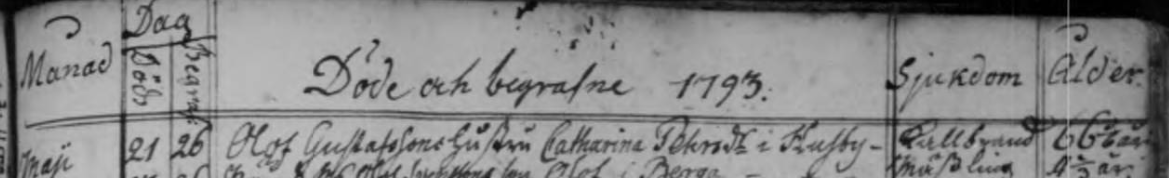 Månad Dag Död: Begraf: Döde och begrafne 1793. Sjukdom Ålder.
Maji 21 26 Olof Gustafssons hustru Catharina Petersd:r i Husby - Kallbrand 66 år
Olof i Berga - Mäßling 9 1/2 år